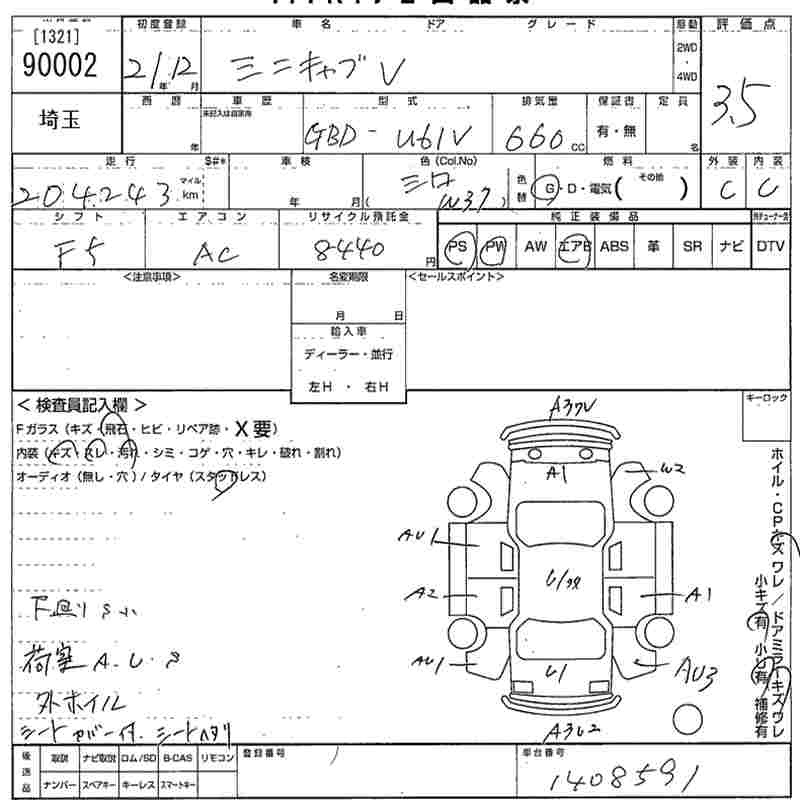 [1321]
90002
初度登録 車名 ドア グレード 駆動 評価点
21年12月 ミニキャブV 2WD・4WD 3.5
埼玉
西暦 車歴 型式 排気量 保証書 定員
年 未記入は自家用 GBD-U61V 660cc 有・無 名
走行 $#* 車検 色(Col.No) 燃料 外装 内装
204,243 マイル km 年 月( シロ W37 ) 色替 G・D・電気( その他 ) C C
シフト エアコン リサイクル預託金 純正装備品
F5 AC 8440円 PS PW AW エアB ABS 革 SR ナビ DTV
<注意事項> 名変期限 <セールスポイント>
月 日
輸入車
ディーラー・並行
左H ・ 右H
<検査員記入欄> キーロック
Fガラス(キズ・飛石・ヒビ・リペア跡・X要)
内装(キズ・スレ・汚れ・シミ・コゲ・穴・キレ・破れ・割れ)
オーディオ(無し・穴)/タイヤ(スタッドレス)
A1
W2
AU1
A2 A1
AU1 U1 AU3
ホイル・CPキズ ワレ/ドアミラーキズワレ
小キズ有 小U有 補修有
荷室 A.U.S
外ホイル
シートカバー付. シートヘタリ
後送品 取説 ナビ取説 ロム/SD B-CAS リモコン 登録番号 車台番号
ナンバー スペアキー キーレス スマートキー 1408591